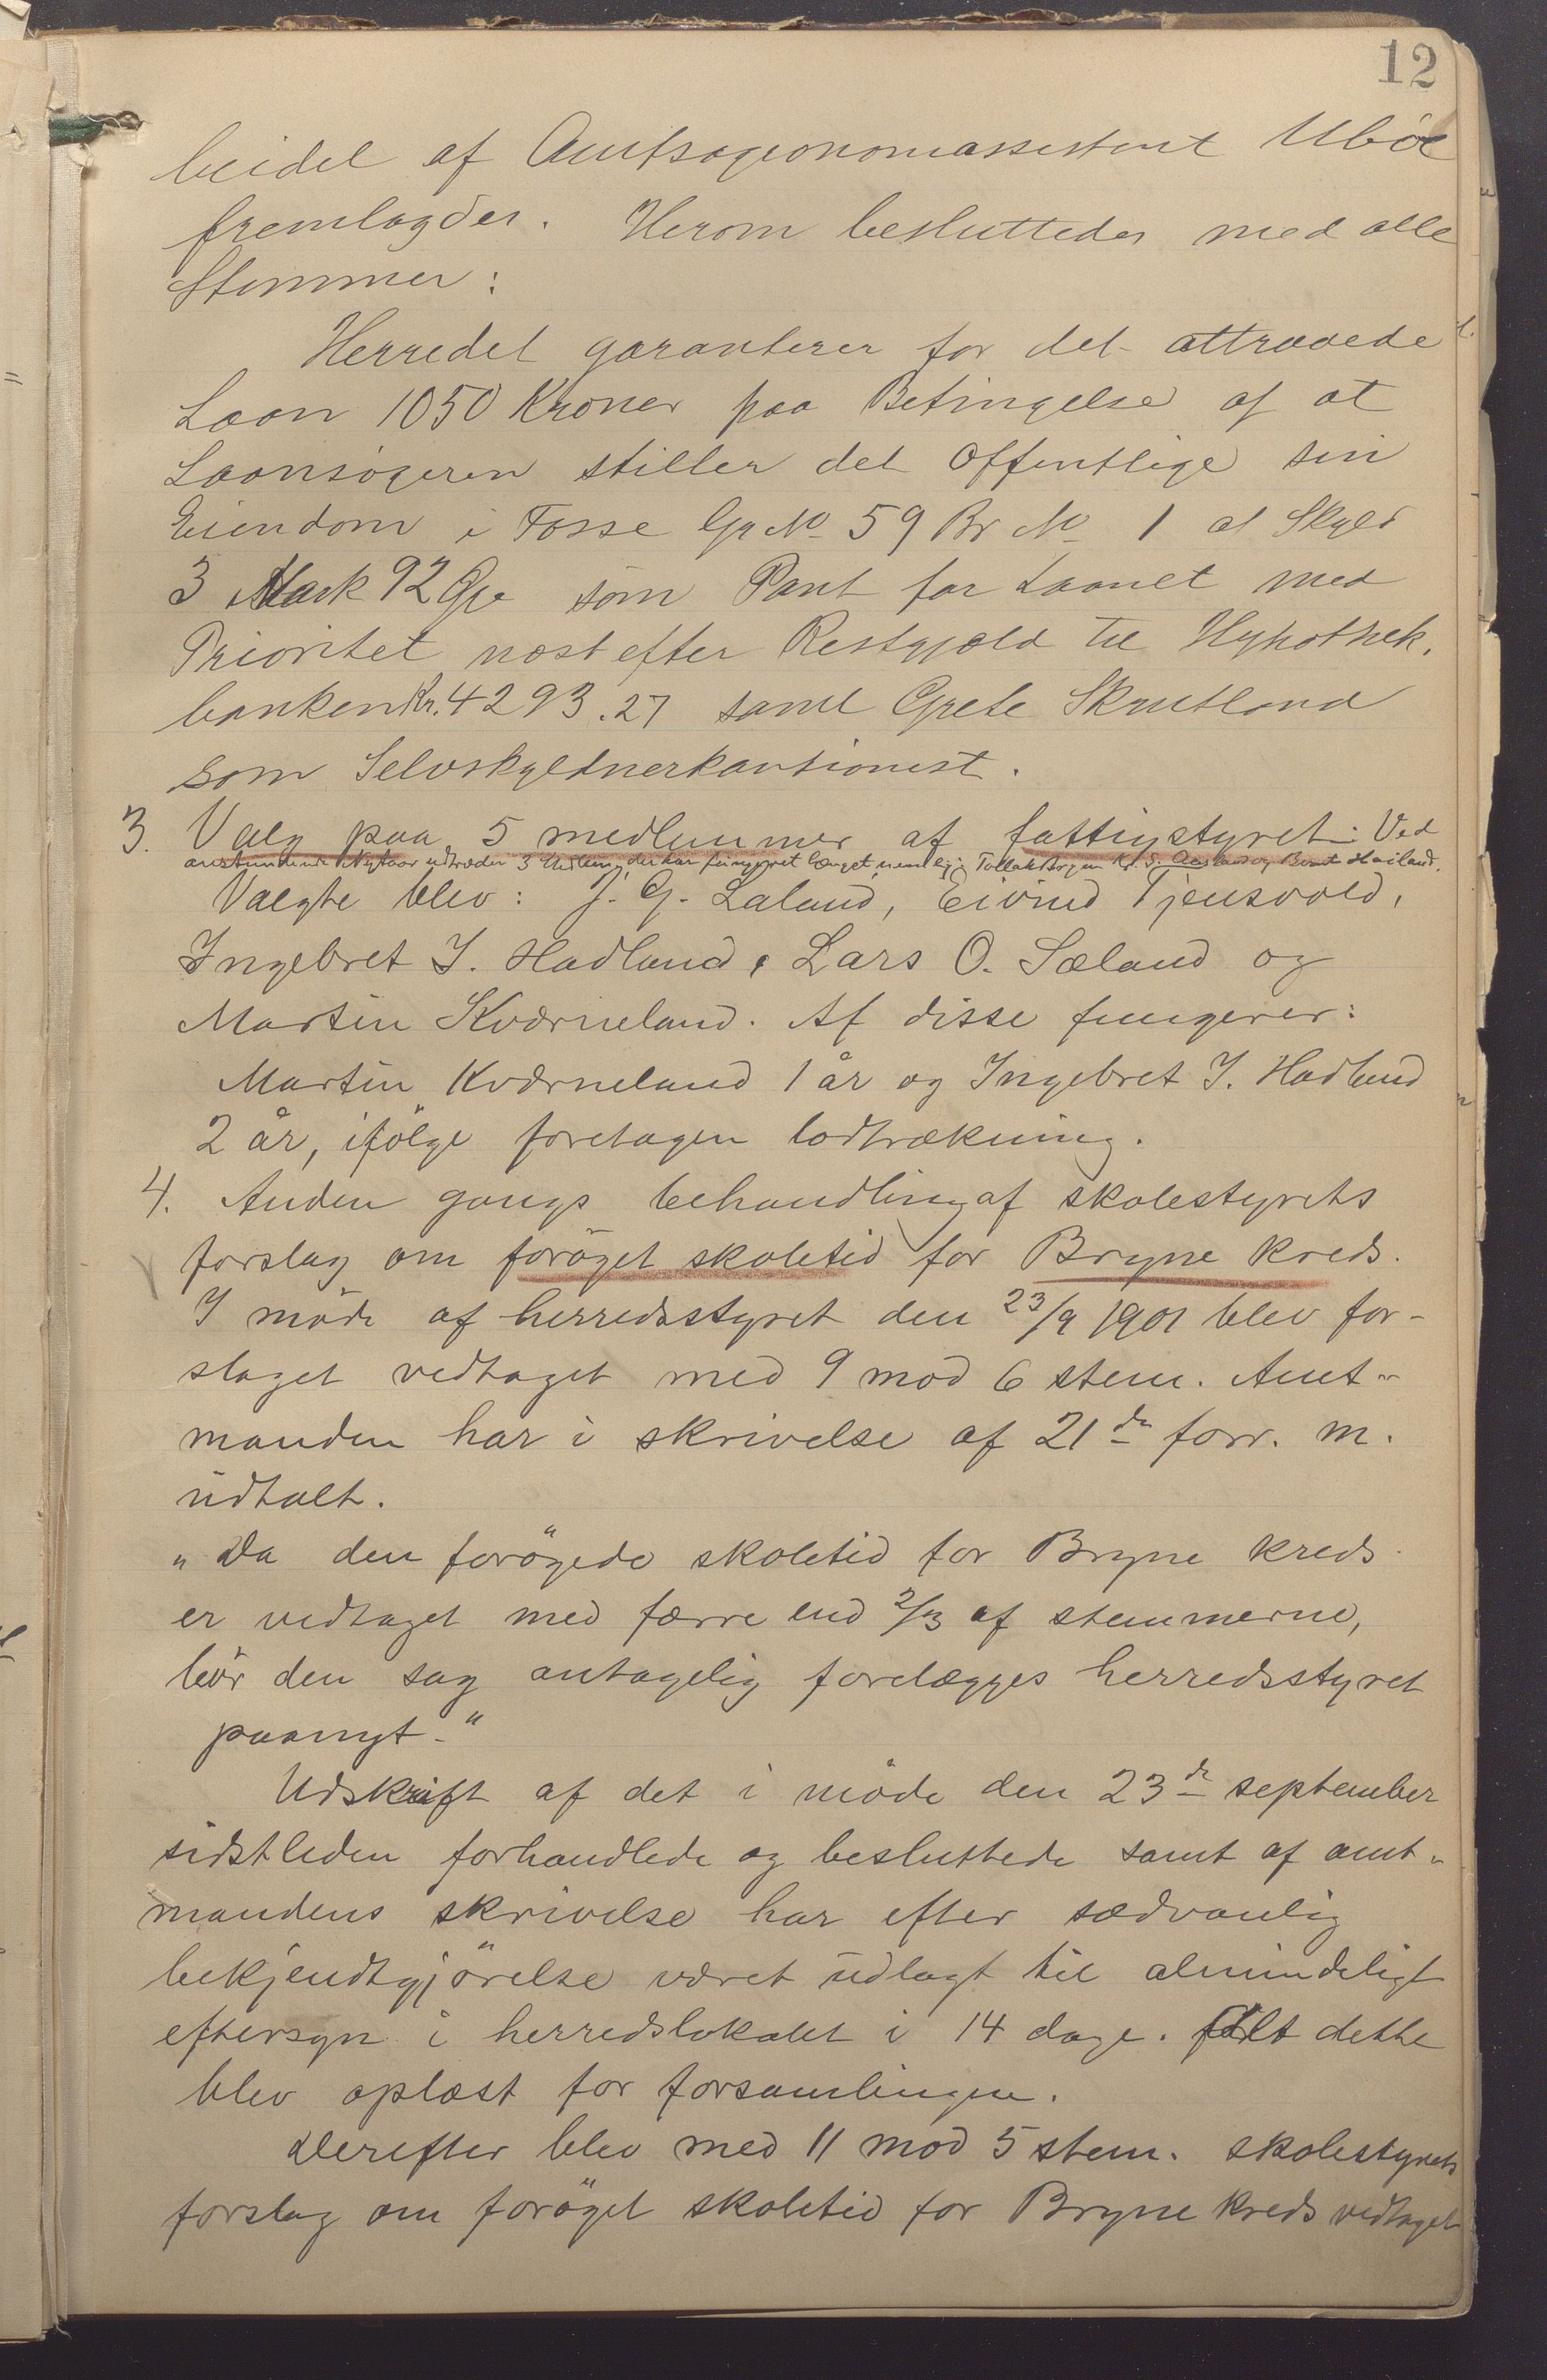 12
beidet af Amtsagronomassistent Ubøe
fremlagdes. Herom besluttedes med alle
Stemmer:
Herredet garanterer for det attraaede
Laan 1050 Kroner paa Betingelse af at
Laansøgeren stiller det Offentlige sin
Eiendom i Fosse Gr No 59 Br No 1 af Skyld
3 Mark 92 Øre som Pant for Laanet med
Prioritet næst efter Restgjæld til Hypothek.
banken Kr. 4293.27 samt Grete Skrutland
som Selvskyldnerkautionist.
3. Valg paa 5 medlemmer af fattigstyret. Ved
anstundende Nytaar udtræder 3 Medlem, der har fungeret længst, nemlig: Tollak og Bernt Høiland.
Valgte blev: J. G. Laland, Eivind Tjensvold,
Ingebret I. Hadland, Lars O. Sæland og
Martin Kværneland. Af disse fungerer:
Martin Kværneland 1 år og Ingebret I. Hadland
2 år, ifölge foretagen lodtrækning.
4. Anden gangs behandling af skolestyrets
forslag om foröget skoletid for Bryne kreds.
I möde af herredsstyret den 23/9 1901 blev for-
slaget vedtaget med 9 mod 6 stem. Amt-
manden har i skrivelse af 21de forr. m.
udtalt.
"Da den forögede skoletid for Bryne kreds
er vedtaget med færre end 2/3 af stemmerne,
bör den sag antagelig forelægges herredsstyret
paanyt."
Udskrift af det i möde den 23de september
sidstleden forhandlede og besluttede samt af amt-
mandens skrivelse har efter sædvanlig
bekjendtgjörelse været udlagt til almindeligt
eftersyn i herredslokalet i 14 dage. Alt dette
blev oplæst for forsamlingen.
Derefter blev med 11 mod 5 stem. skolestyrets
forslag om foröget skoletid for Bryne kreds vedtaget